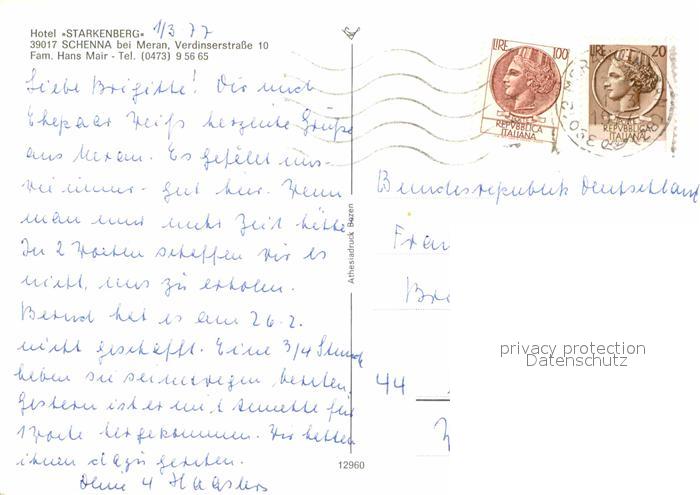 Hotel »STARKENBERG« 1/3 77
39017 SCHENNA bei Meran, Verdinserstraße 10
Fam. Hans Mair - Tel. (0473) 9 56 65
Liebe Brigitte! Dir und
Ehepaar Weiß herzliche Grüße
aus Meran. Es gefällt uns -
wie immer - gut hier. Wenn
man nur mehr Zeit hätte
In 2 Wochen schaffen wir es
nicht, uns zu erholen.
Bernd hat es am 26.2.
nicht geschafft. Eine 3/4 Stunde
haben sie seinetwegen beraten.
Gestern ist er mit Annette für
1 Woche hergekommen. Wir hatten
ihnen dazu geraten.
4
Athesiadruck Bozen
12960
LIRE 100
REPVBBLICA
ITALIANA
LIRE 20
REPVBBLICA
ITALIANA
Bundesrepublik Deutschland
Frau
Bri
44
privacy protection
Datenschutz